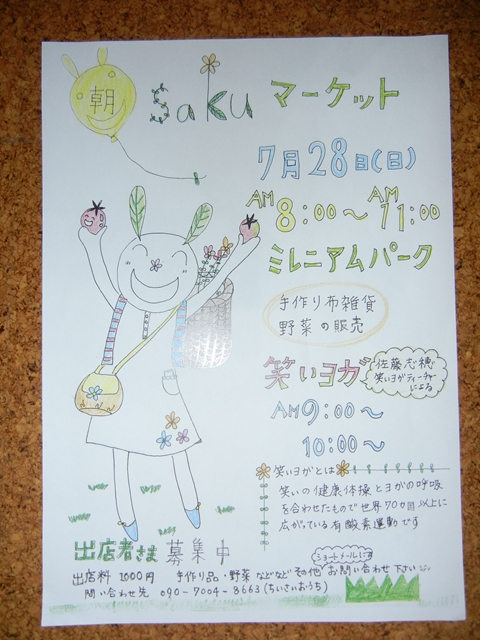 朝
Saku マーケット
7月28日(日)
AM 8:00〜AM 11:00
ミレニアムパーク
手作り布雑貨
野菜の販売
笑いヨガ
佐藤志穂
笑いヨガティーチャー
による
AM9:00〜
10:00〜
笑いヨガとは
笑いの健康体操とヨガの呼吸
を合わせたもので世界70カ国以上に
広がっている有酸素運動です
出店者さま募集中
ショートメールにて
出店料 1000円 手作り品・野菜などなどその他お問い合わせ下さい
問い合わせ先 090-7004-8663(ちいさいおうち)